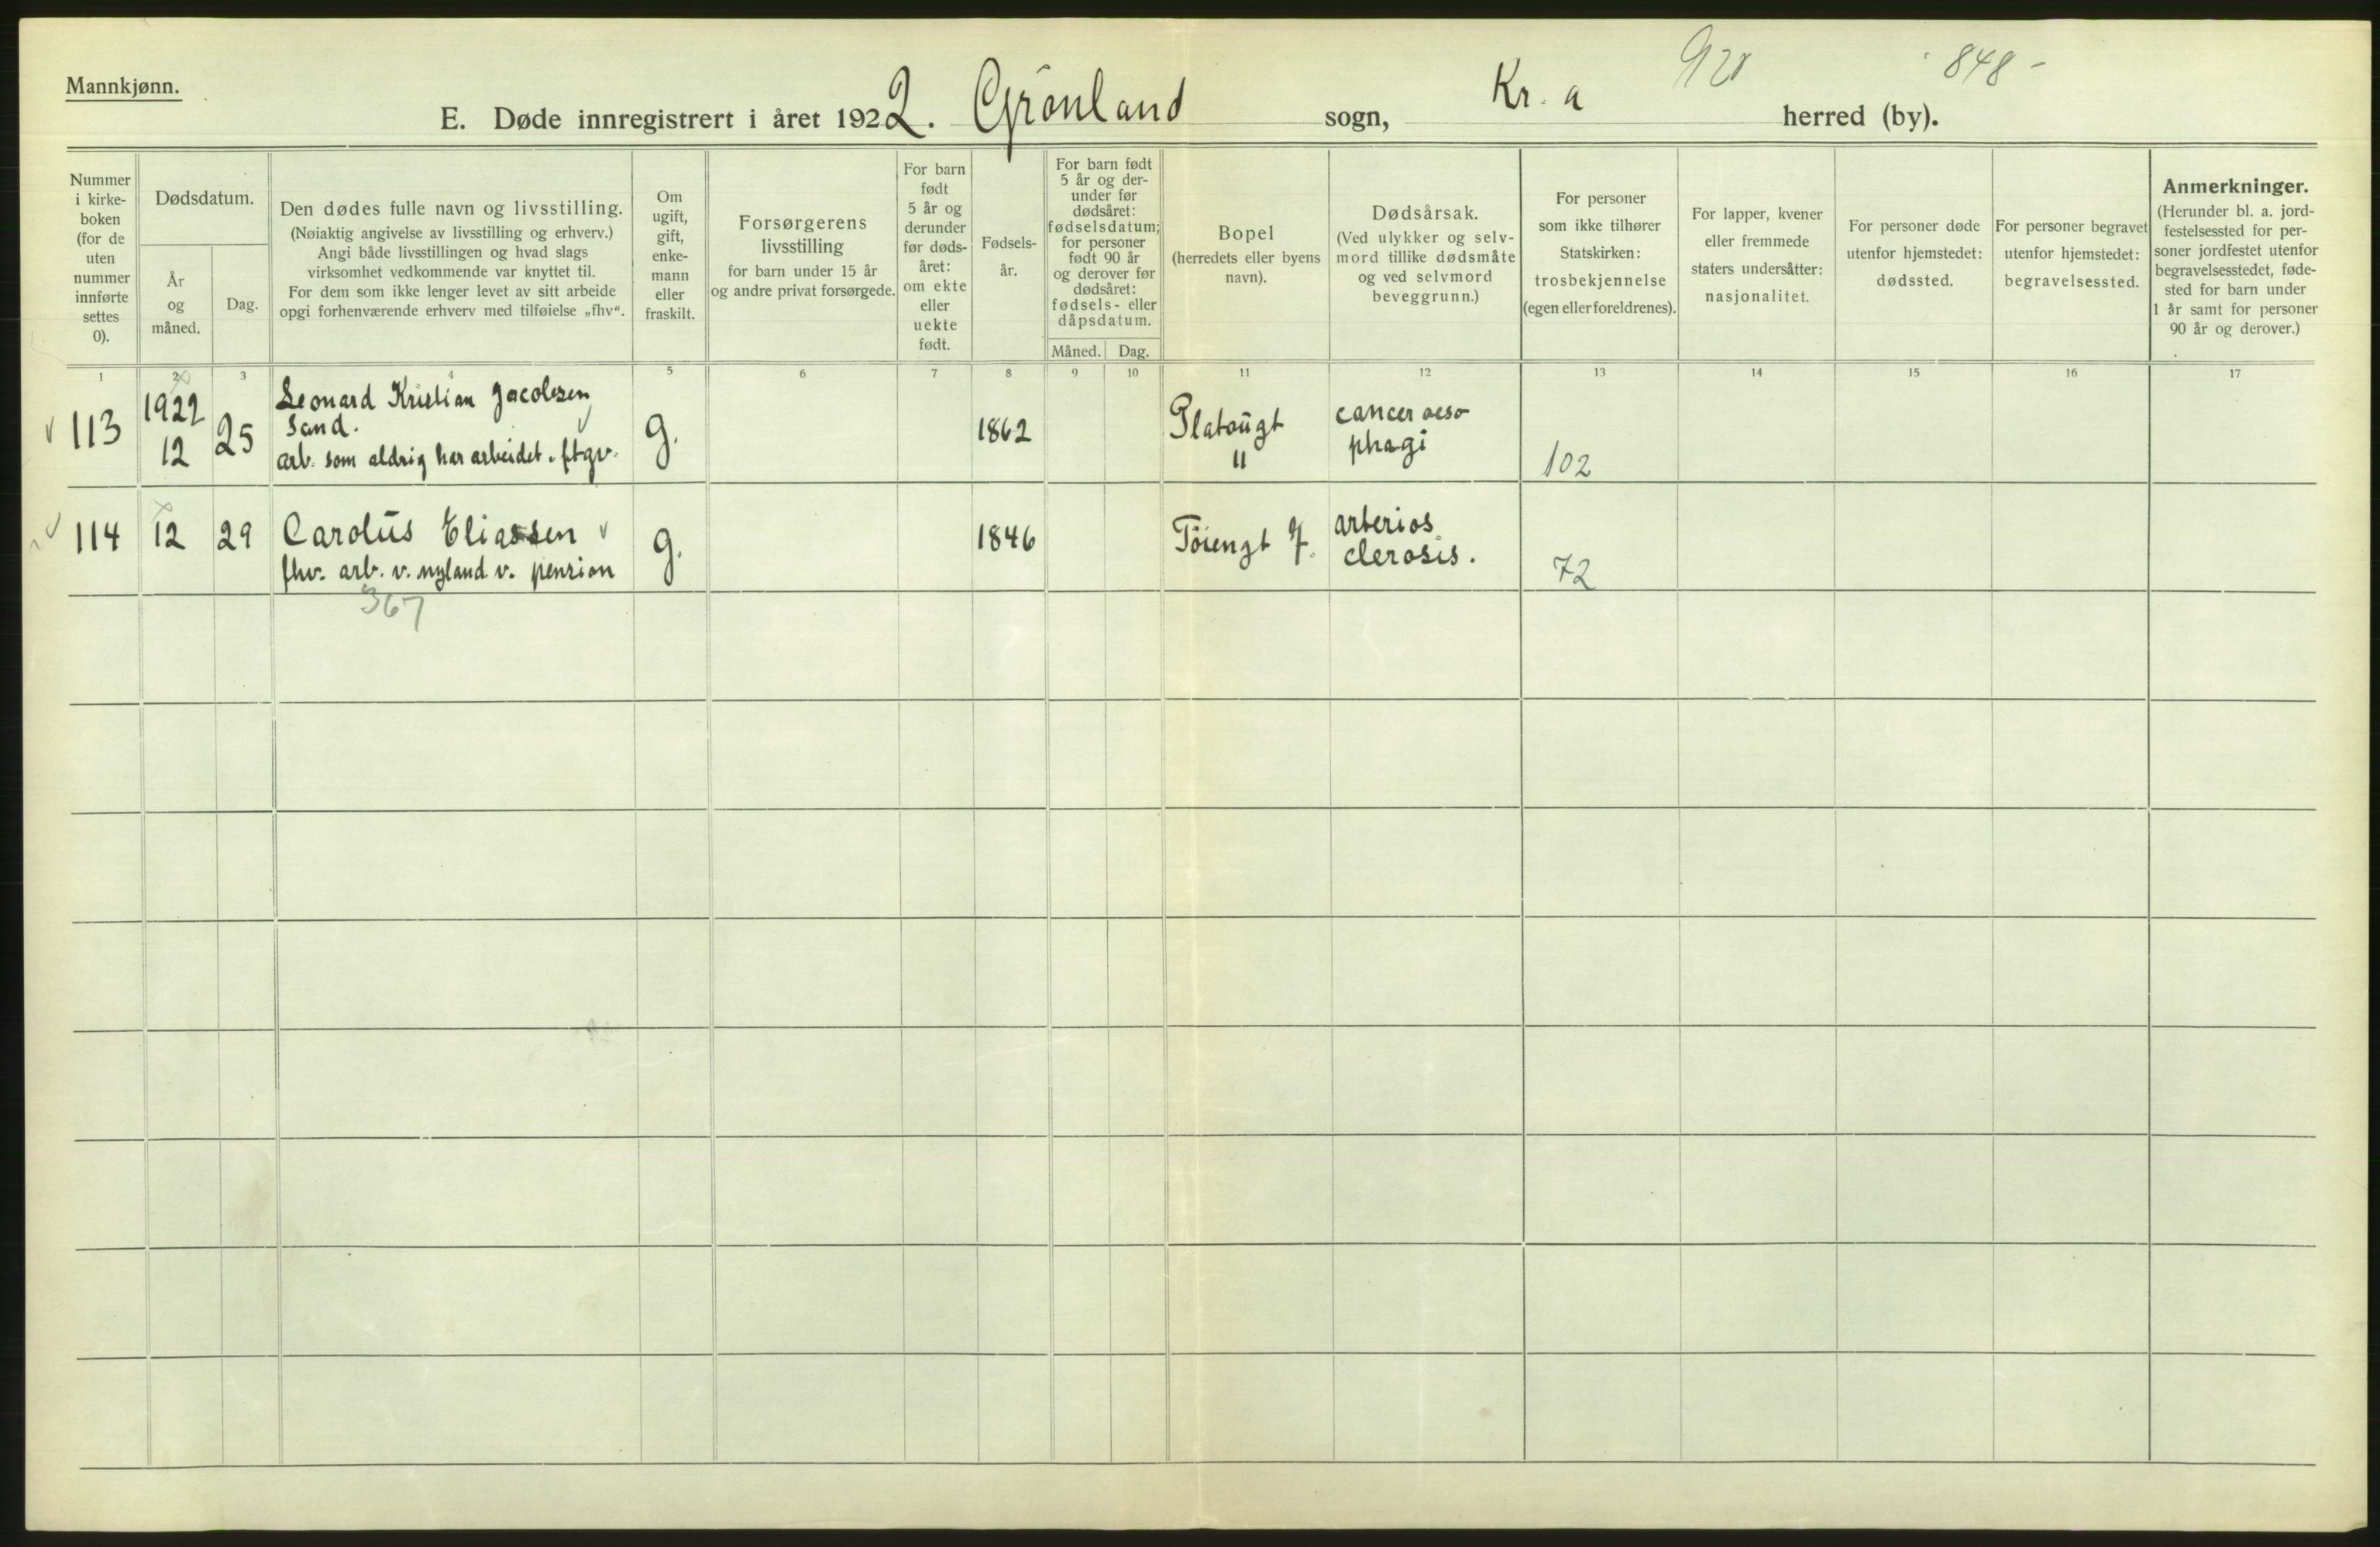 Mannkjønn.
920
848-
E. Døde innregistrert i året 1922. Grønland sogn, Kr. a herred (by).
Nummer i kirke-boken (for de uten nummer innførte settes 0).
Dødsdatum.
År og måned.
Dag.
Den dødes fulle navn og livsstilling.
(Nøiaktig angivelse av livsstilling og erhverv.)
Angi både livsstillingen og hvad slags
virksomhet vedkommende var knyttet til.
For dem som ikke lenger levet av sitt arbeide
opgi forhenværende erhverv med tilføielse „fhv".
Om ugift, gift, enke-mann eller fraskilt.
Forsørgerens
livsstilling
for barn under 15 år
og andre privat forsørgede.
For barn født 5 år og derunder før døds-året: om ekte eller uekte født.
Fødsels-år.
For barn født 5 år og der-under før dødsåret: fødselsdatum; for personer født 90 år og derover før dødsåret: fødsels- eller dåpsdatum.
Måned. Dag.
Bopel
(herredets eller byens
navn).
Dødsårsak.
(Ved ulykker og selv-
mord tillike dødsmåte
og ved selvmord
beveggrunn.)
For personer
som ikke tilhører
Statskirken:
trosbekjennelse
(egen eller foreldrenes).
For lapper, kvener
eller fremmede
staters undersåtter:
nasjonalitet.
For personer døde
utenfor hjemstedet:
dødssted.
For personer begravet
utenfor hjemstedet:
begravelsessted.
Anmerkninger.
(Herunder bl. a. jord-
festelsessted for per-
soner jordfestet utenfor
begravelsesstedet, føde-
sted for barn under
1 år samt for personer
90 år og derover.)
1 2 3 4 5 6 7 8 9 10 11 12 13 14 15 16 17
113
1922
12
25
Leonard Kristian Jacobsen
Sand.
arb. som aldrig har arbeidet. ftgv.
g.
1862
Platougt
11
cancer oeso
phagi
102
114
12
29
Carolus Eliassen
fhv. arb. v. nyland. v. pension
g.
1846
Töiengt 7.
arterios
clerosis.
72
367